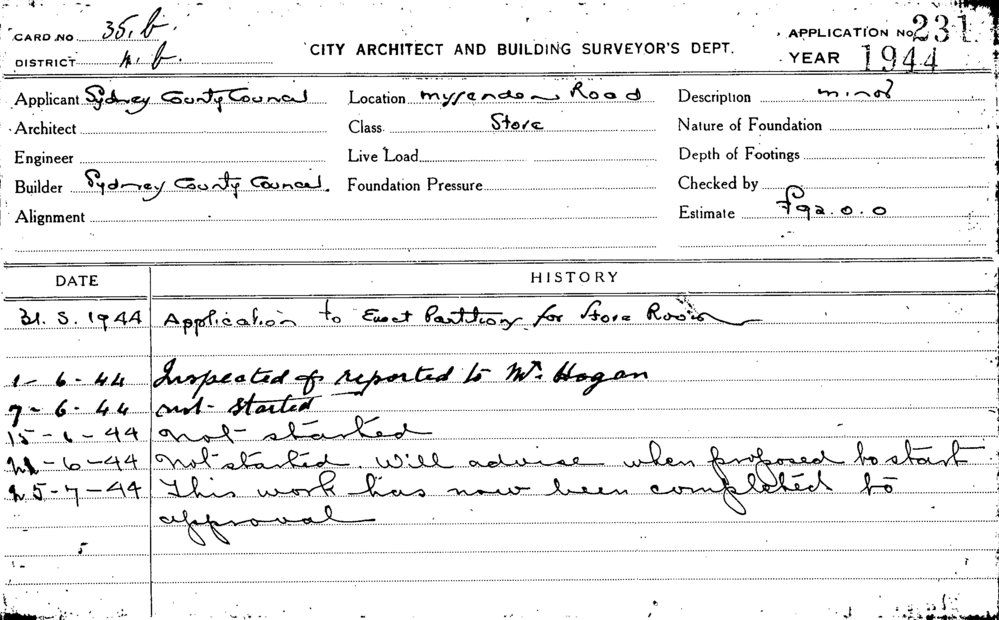 CARD NO 35.b. APPLICATION No. 231
DISTRICT n.b. CITY ARCHITECT AND BUILDING SURVEYOR'S DEPT. YEAR 1944
Applicant Sydney County Council Location Myssenden Road Description minor
Architect Class Store Nature of Foundation
Engineer Live Load Depth of Footings
Builder Sydney County Council. Foundation Pressure Checked by
Alignment Estimate £92.0.0
DATE HISTORY
31.5.1944 Application to Erect Partition for Store Room
1-6-44 Inspected & reported to Mr. Hogan
7-6-44 not started
15-6-44 Not started
-6-44 Not started. Will advise when proposed to start
25-7-44 This work has now been completed to
approval